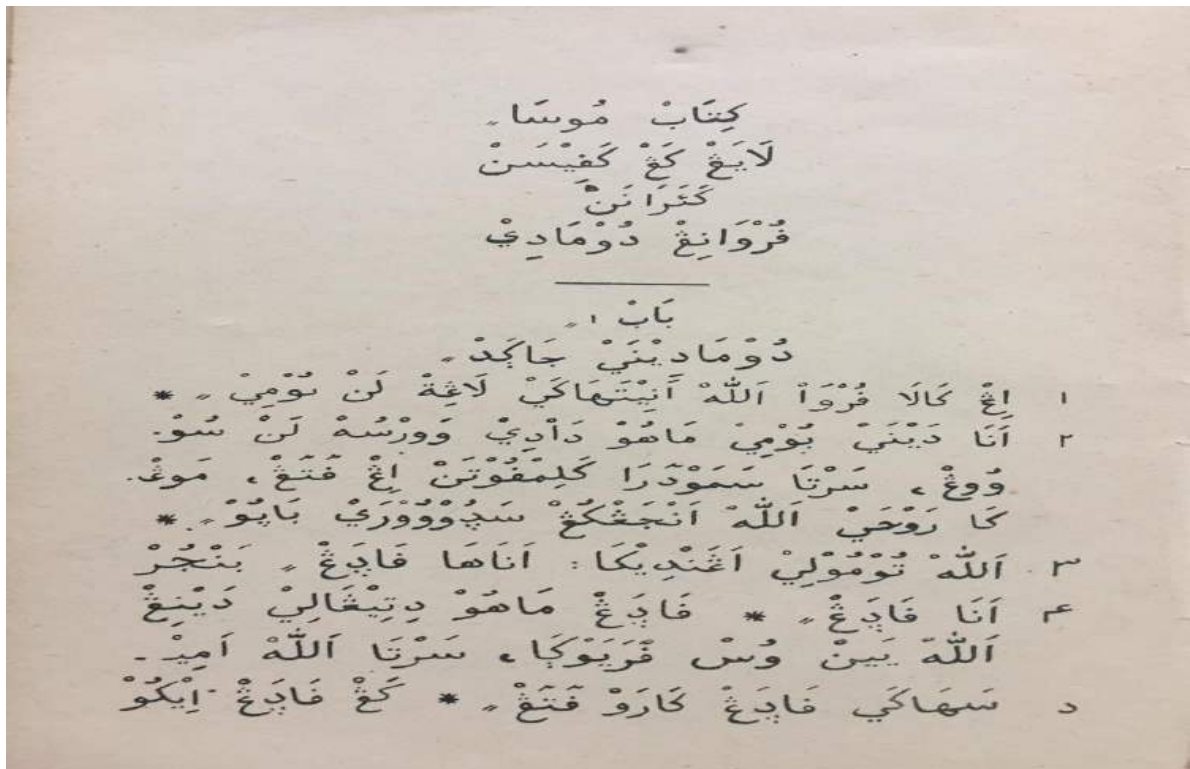 كِتَابْ مُوسَا ۔
لَايَڠْ كَڠْ كَڤِيْسَنْ
كَتَرَانَنْ
ڤُرْوَانِڠْ دُوْمَادِيْ
بَابْ ١ ۔
دُوْمَادِيْنَيْ جَاڮَدْ ۔
١ اِڠْ كَالَا ڤُرْوَا اَللهْ اَنِيْتَهَاكَيْ لَاڠِةْ لَنْ بُوْمِيْ ۔ *
٢ اَنَا دَيْنَيْ بُوْمِيْ مَاهُوْ دَادِيْ وَوْرْسُهْ لَنْ سُوْ۔
وُوڠْ، سَرْتَا سَمَوْدْرَا كَلِمْڤُوْتَنْ اِڠْ ڤَتَڠْ، مَوڠْ۔
كَا رَوْحَيْ اَللهْ اَنْجَڠْكُڠْ سَڎُوْوُوْرَيْ بَاپُوْ ۔ *
٣ اَللهْ تُوْمُوْلِيْ اَڠَنْدِيْكَا: اَنَاهَا ڤَاڎَڠْ ۔ بَنْجُرْ
۴ اَنَا ڤَاڎَڠْ ۔ * ڤَاڎَڠْ مَاهُوْ دِتِيْڠَالِيْ دَيْنِڠْ
اَللهْ يَينْ وُسْ ڤْرَيَوْڮَا، سَرْتَا اَللهْ اَمِيْ۔
د سَهَاكَيْ ڤَاڎَڠْ كَارَوْ ڤَتَڠْ ۔ * كَڠْ ڤَاڎَڠْ اِيْكُوْ